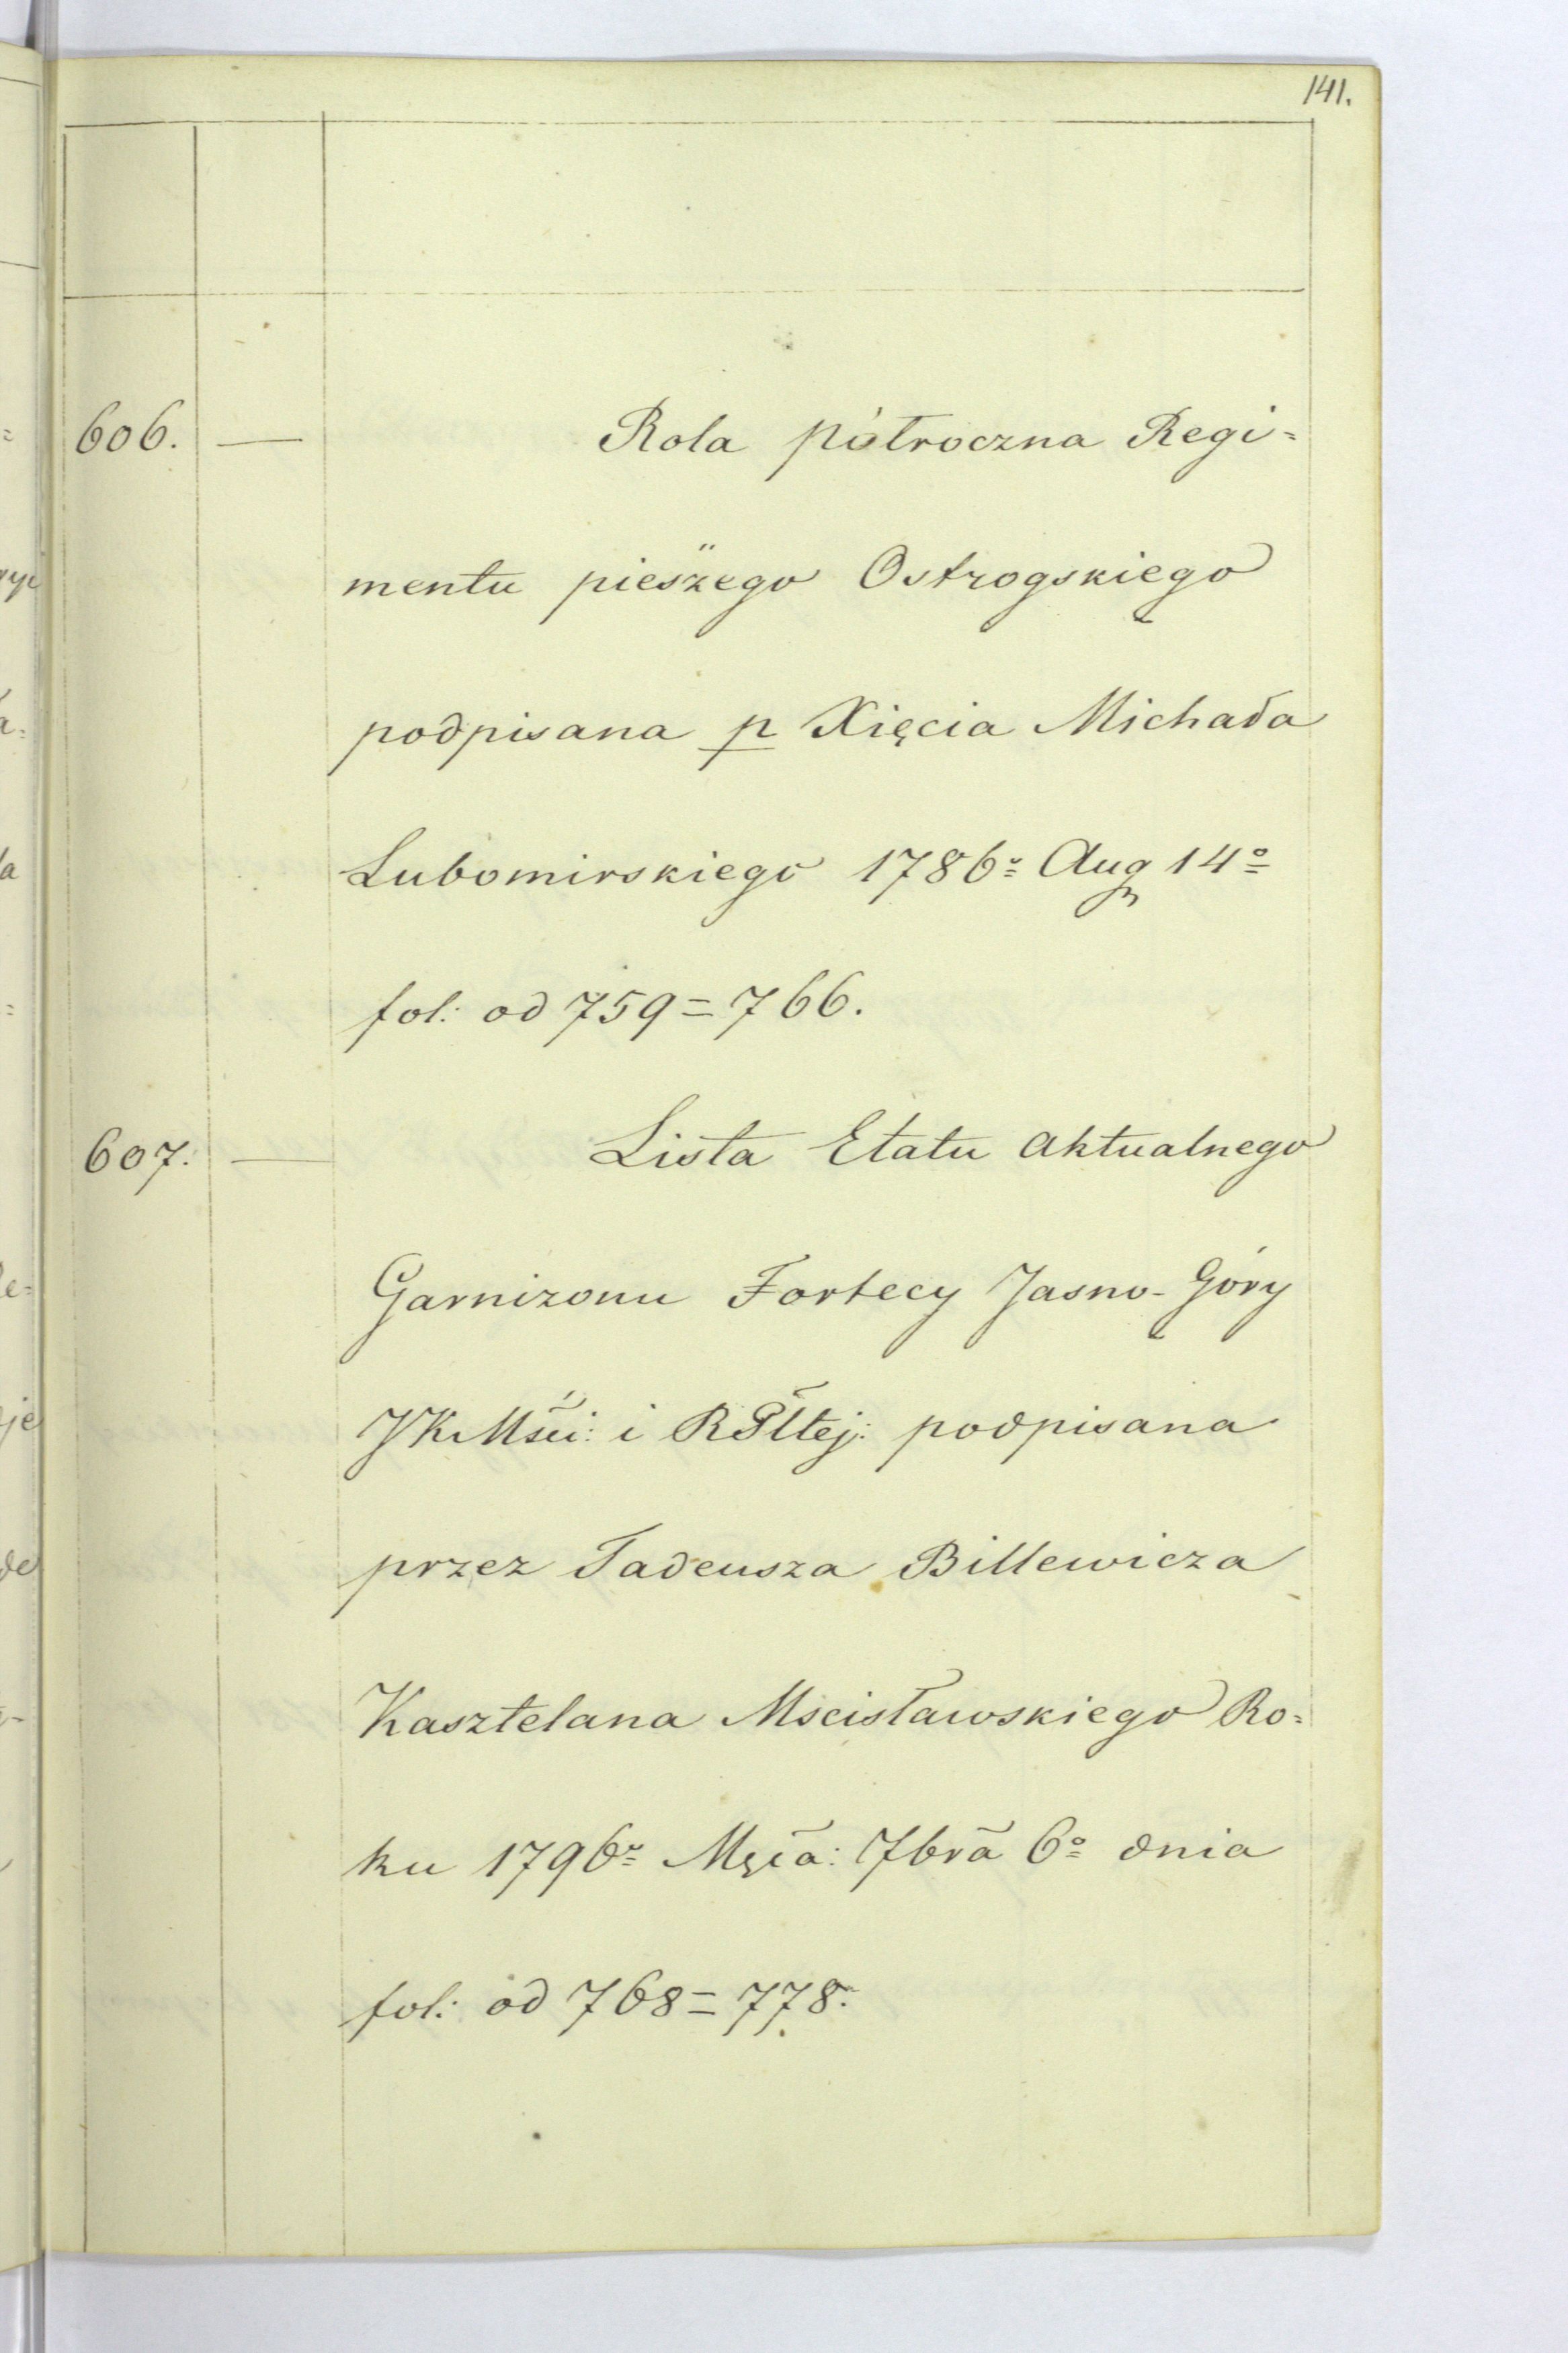 141.
606. — Rola półroczna Regi=
mentu pieszego Ostrogskiego
podpisana p Xięcia Michała
Lubomirskiego 1786º Aug 14º
fol: od 759=766.
607. — Lista Etatu aktualnego
Garnizonu Fortecy Jasno-Góry
JKMści: i RPltej: podpisana
przez Tadeusza Billewicza
Kasztelana Mscisławskiego Ro=
ku 1796º Męca: 7bra 6º dnia
fol: od 768=778.